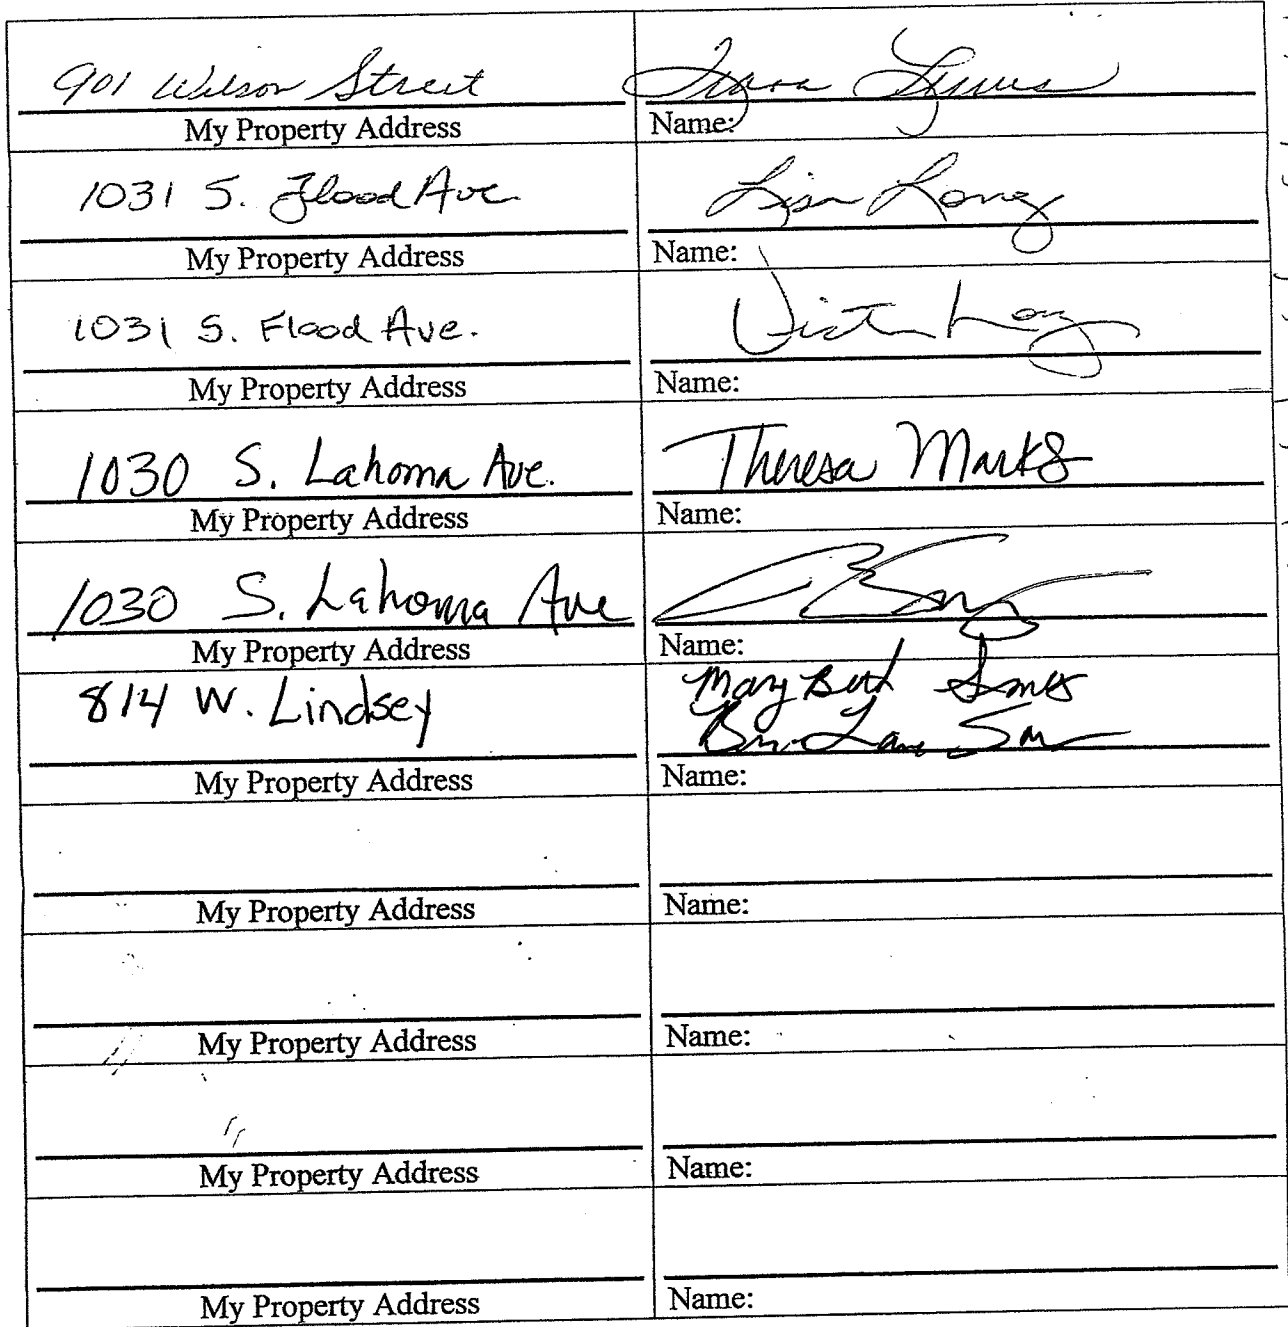 901 Wilson Street
My Property Address
Name:
1031 S. Flood Ave. Lisa Long
My Property Address
Name:
1031 S. Flood Ave. Victor Long
My Property Address
Name:
1030 S. Lahoma Ave. Theresa Marks
My Property Address
Name:
1030 S. Lahoma Ave
My Property Address
Name:
814 W. Lindsey Mary Beth
My Property Address
Name:
My Property Address
Name:
My Property Address
Name:
My Property Address
Name:
My Property Address
Name: